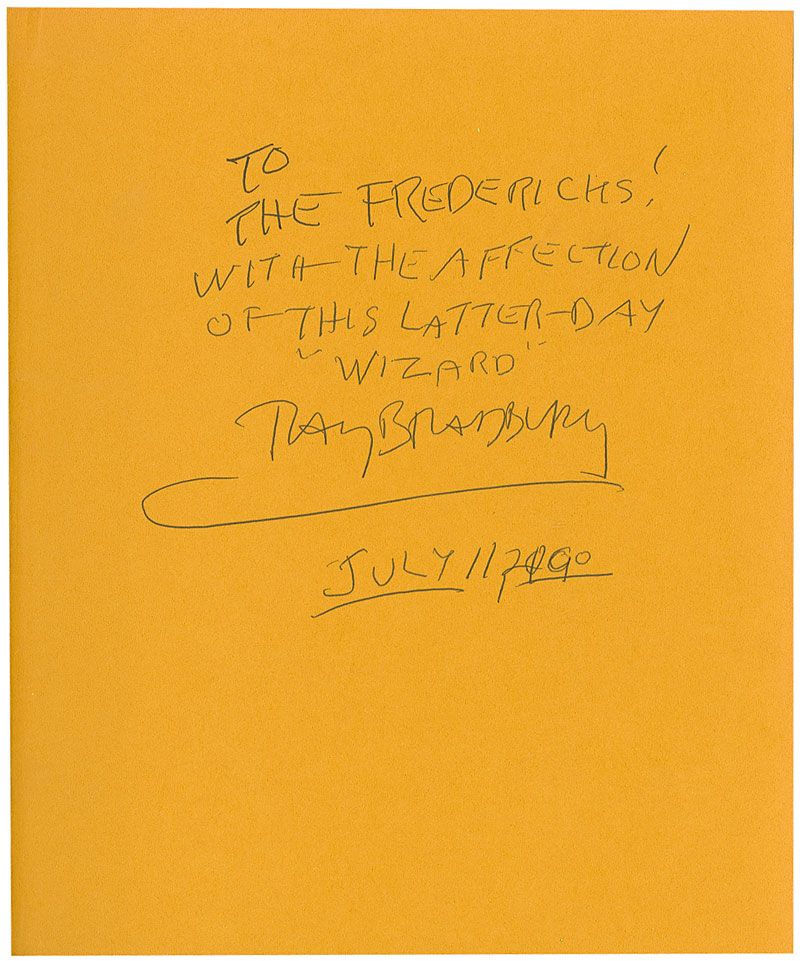 TO
THE FREDERICKS!
WITH THE AFFECTION
OF THIS LATTER-DAY
"WIZARD"
RAY BRADBURY
JULY 11,